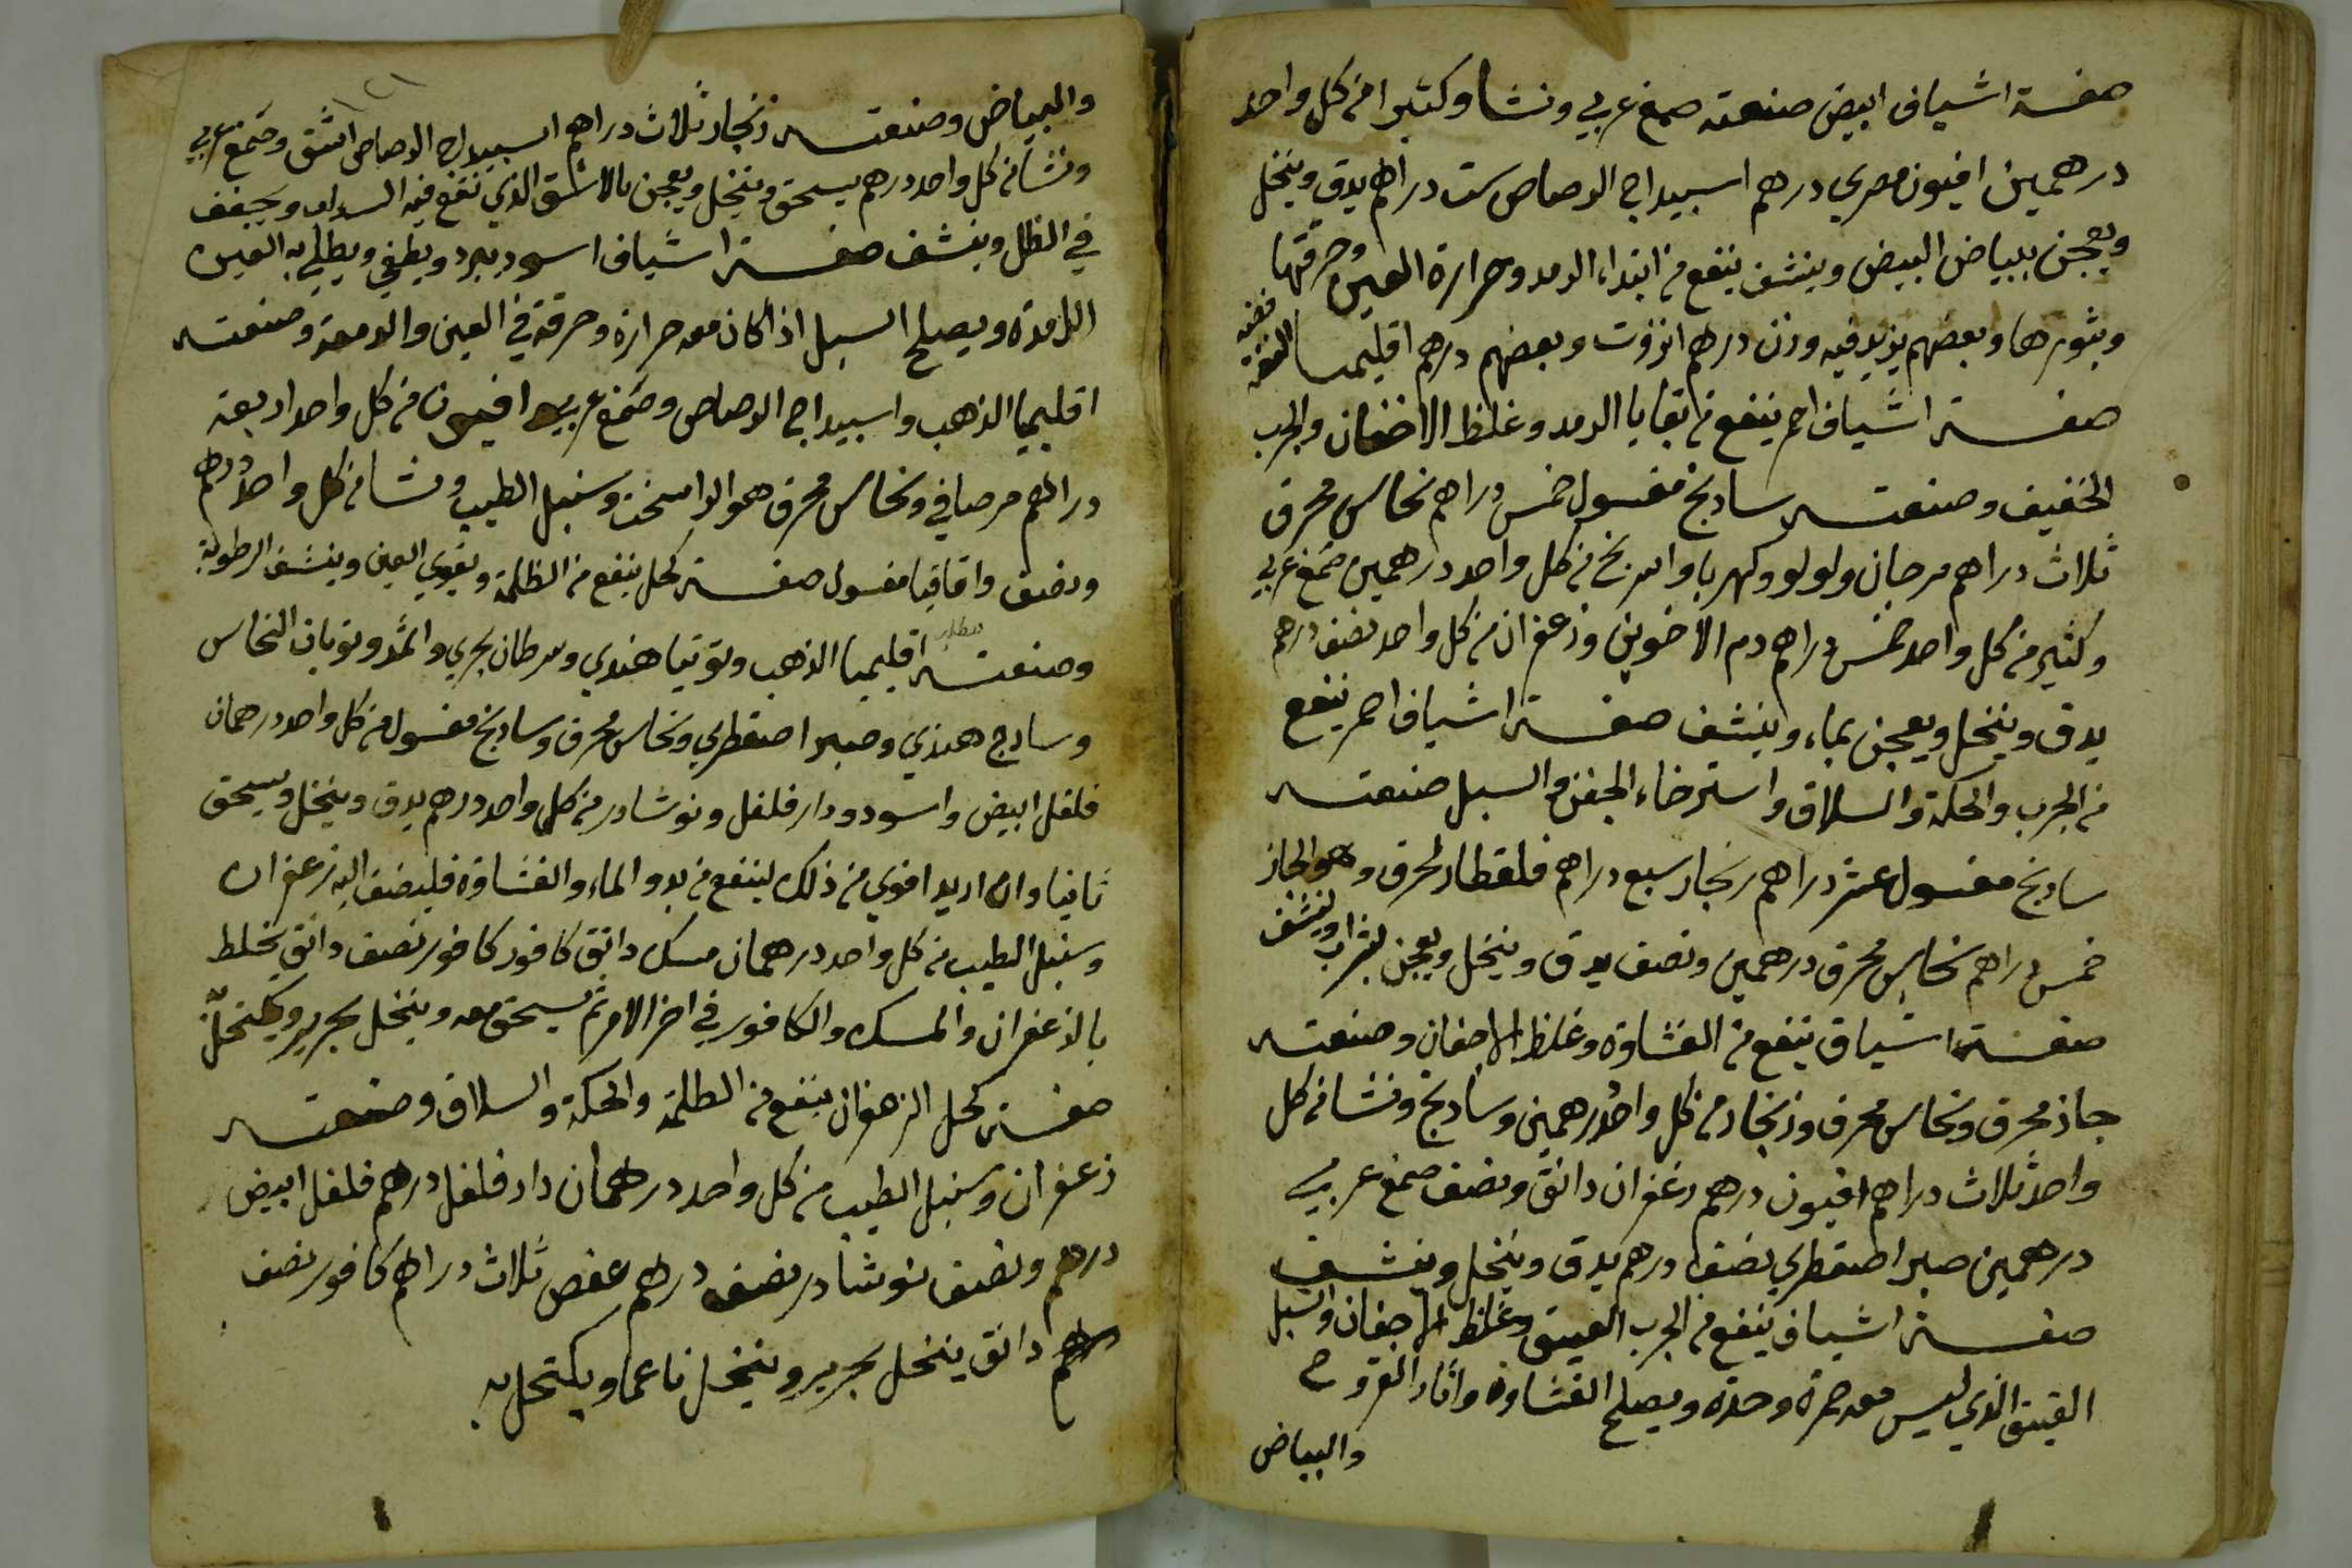 صفة اشياف ابيض صنعته صمغ عربي ونشا وكثيرا من كل واحد
درهمين افيون مصري درهم اسبيداج الرصاص ست دراهم يدق وينخل
ويعجن ببياض البيض وينشف ينفع من ابتداء الرمد وحرارة العين وحرقتها
وبثورها وبعضهم يزيد فيه وزن درهم انزروت وبعضهم درهم اقليميا الفضة
صفة اشياف احمر ينفع من بقايا الرمد وغلظ الاجفان والجرب
الخفيف وصنعته سادنج مغسول خمس دراهم نحاس محرق
ثلاث دراهم مرجان ولولو وكهربا واسرنج من كل واحد درهمين صمغ عربي
وكثير من كل واحد خمس دراهم دم الاخوين وزعفران من كل واحد نصف درهم
يدق وينخل ويعجن بماء وينشف صفة اشياف احمر ينفع
من الجرب والحكة والسلاق واسترخاء الجفن والسبل صنعته
سادنج مغسول عشر دراهم زنجار سبع دراهم قلقطار محرق وهو الجاز
خمس دراهم نحاس محرق درهمين ونصف يدق وينخل ويعجن بشراب وينشف
صفة اشياف ينفع من الغشاوة وغلظ الاجفان وصنعته
جاز محرق ونحاس محرق وزنجار من كل واحد درهمين وسادنج ونشا من كل
واحد ثلاث دراهم افيون درهم زعفران دانق ونصف صمغ عربي
درهمين صبر اصقطري نصف درهم يدق وينخل وينشف
صفة اشياف ينفع من الجرب العتيق وغلظ الاجفان والسبل
العتيق الذي ليس معه حمرة وحدة ويصلح الغشاوة واثار القروح
والبياض
والبياض وصنعته زنجار ثلاث دراهم اسبيداج الرصاص اشق وصمغ عربي
ونشا من كل واحد درهم يسحق وينخل ويعجن بالاشق الذي نقع فيه السداب ويجفف
في الظل وينشف صفة اشياف اسود يبرد ويطفي ويطلي به العين
الرمدة ويصلح السبل اذا كان معه حرارة وحرقة في العين والدمعة وصنعته
اقليميا الذهب واسبيداج الرصاص وصمغ عربي افيون من كل واحد اربعة
دراهم مر صافي ونحاس محرق هو الراسخت وسنبل الطيب ونشا من كل واحد درهم
ونصف واقاقيا مغسول صفة كحل ينفع من الظلمة ويقوي العين وينشف الرطوبة
وصنعته اقليميا الذهب وتوتيا هندي وسرطان بحري واثمد وتوبان النحاس
وسادج هندي وصبر اصقطري ونحاس محرق وسادنج مغسول من كل واحد درهمان
فلفل ابيض واسود ودار فلفل ونوشادر من كل واحد درهم يدق وينخل ويسحق
ثانيا وان اريد اقوي من ذلك لينفع من بدو الماء والغشاوة فليضف اليه زعفران
وسنبل الطيب من كل واحد درهمان مسك دانق كافور كافور نصف دانق يخلط
بالزعفران والمسك والكافور في اخر الامر ثم يسحق معه وينخل بحرير ويكتحل
صفة كحل الزعفران ينفع من الظلمة والحكة والسلاق وصنعته
زعفران وسنبل الطيب من كل واحد درهمان دار فلفل درهم فلفل ابيض
درهم ونصف نوشادر نصف درهم عفص ثلاث دراهم كافور نصف
درهم دانق ينخل بحرير وينخل ناعما ويكتحل به